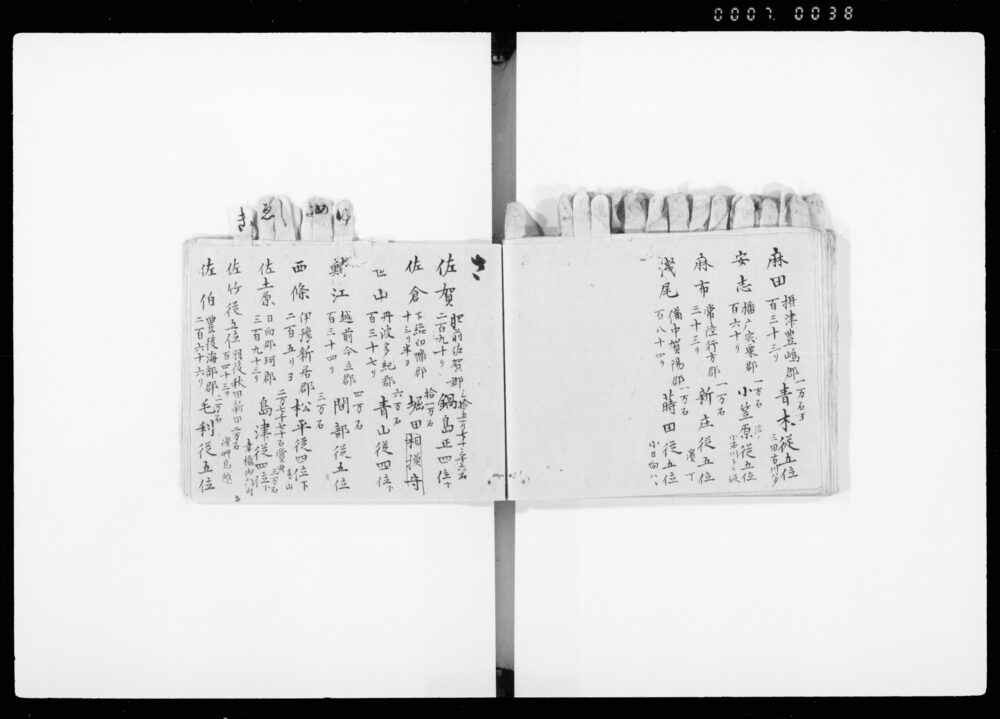 0007 0038
麻田 摂津豊嶋郡 一万石ヨ 青木従五位
百三十三リ
安志 播广宍粟郡 一万石 小笠原従五位
百六十リ
麻布 常陸行方郡 一万石 新庄従五位
三十三リ
浅尾 備中賀陽郡 一万石 蒔田従五位
百八十四リ
さ
佐賀 肥前佐賀郡 鍋島正四位
二百九十リ
佐倉 下総印幡郡 拾一万石 堀田相摸守
十三リ半ヨ
山 丹波多紀郡 六万石 青山従四位下
百三十七リ
鯖江 越前今立郡 四万石 間部従五位
百三十四リ
西條 伊豫新居郡 三万石 松平従四位下
二百五リヨ
佐土原 日向那珂郡 二万七千七十石 島津従四位下
三百九十三リ
佐竹従五位 羽後秋田新田 二万石
百四十三リ
佐伯 豊後海部郡 二万石 毛利従五位
二百六十六リ
き
ゑ
し
め
ゆ